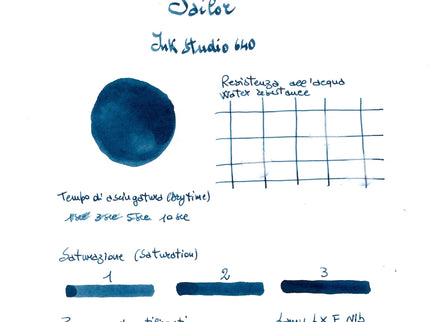 Sailor
Ink Studio 640
Resistenza all'acqua
Water resistance
Tempo di asciugatura (Dry time)
1sec 3sec 5sec 10sec
Saturazione (Saturation)
1 2 3
Lamy LX F Nib